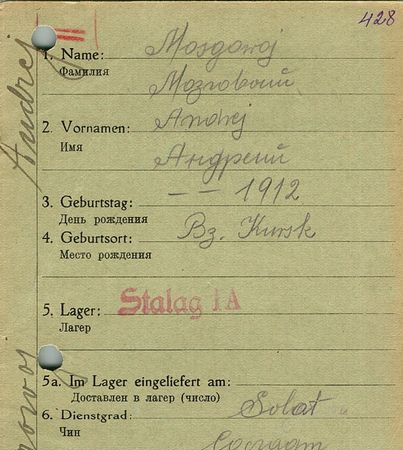 428
1. Name: Mosgowoj
Фамилия Мозговой
2. Vornamen: Andrej
Имя Андрей
3. Geburtstag: — — 1912
День рождения
4. Geburtsort: Bz. Kursk
Место рождения
5. Lager: Stalag I A
Лагер
5a. Im Lager eingeliefert am:
Доставлен в лагер (число)
6. Dienstgrad: Solat
Чин
Andrej